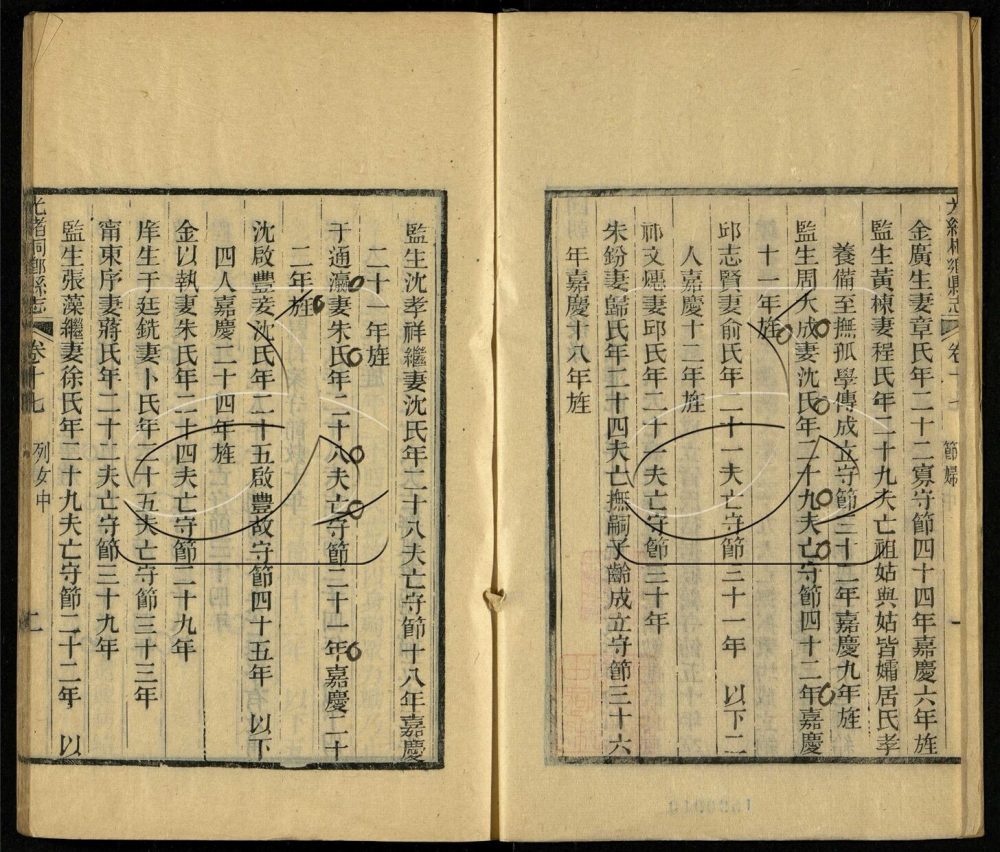 光緒桐鄉縣志 卷十七 節婦
金廣生妻章氏年二十二寡守節四十四年嘉慶六年旌
監生黃棟妻程氏年二十九夫亡祖姑與姑皆孀居氏孝
養備至撫孤學傳成立守節三十二年嘉慶九年旌
監生周大成妻沈氏年二十九夫亡守節四十二年嘉慶
十一年旌
邱志賢妻俞氏年二十一夫亡守節三十一年 以下二
人嘉慶十二年旌
祁文 妻邱氏年二十一夫亡守節三十年
朱鈖妻歸氏年二十四夫亡撫嗣子齡成立守節三十六
年嘉慶十八年旌
監生沈孝祥繼妻沈氏年二十八夫亡守節十八年嘉慶
二十一年旌
于通瀛妻朱氏年二十八夫亡守節二十一年嘉慶二十
二年旌
沈啟豐妾沈氏年二十五啟豐故守節四十五年 以下
四人嘉慶二十四年旌
金以執妻朱氏年二十四夫亡守節二十九年
庠生于廷銑妻卜氏年二十五夫亡守節三十三年
甯東序妻蔣氏年二十二夫亡守節三十九年
監生張藻繼妻徐氏年二十九夫亡守節二十二年 以
光緒桐鄉縣志 卷十七 列女中